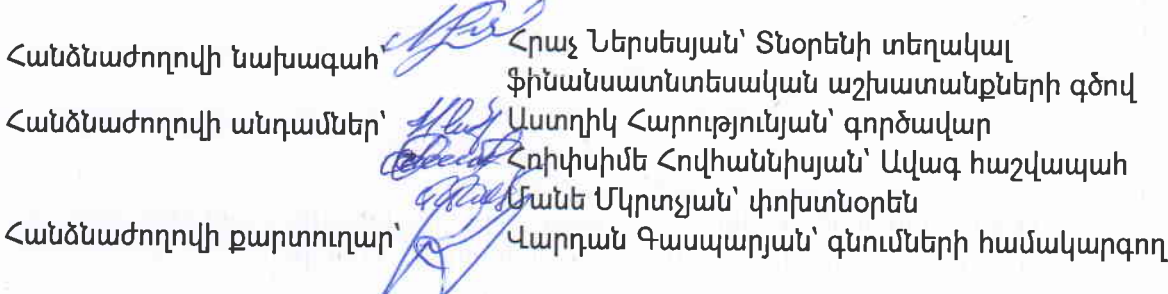 Հանձնաժողովի նախագահ՝ Հրաչ Ներսեսյան՝ Տնօրենի տեղակալ
ֆինանսատնտեսական աշխատանքների գծով
Հանձնաժողովի անդամներ՝ Աստղիկ Հարությունյան՝ գործավար
Հռիփսիմե Հովհաննիսյան՝ Ավագ հաշվապահ
Մանե Մկրտչյան՝ փոխտնօրեն
Հանձնաժողովի քարտուղար՝ Վարդան Գասպարյան՝ գնումների համակարգող